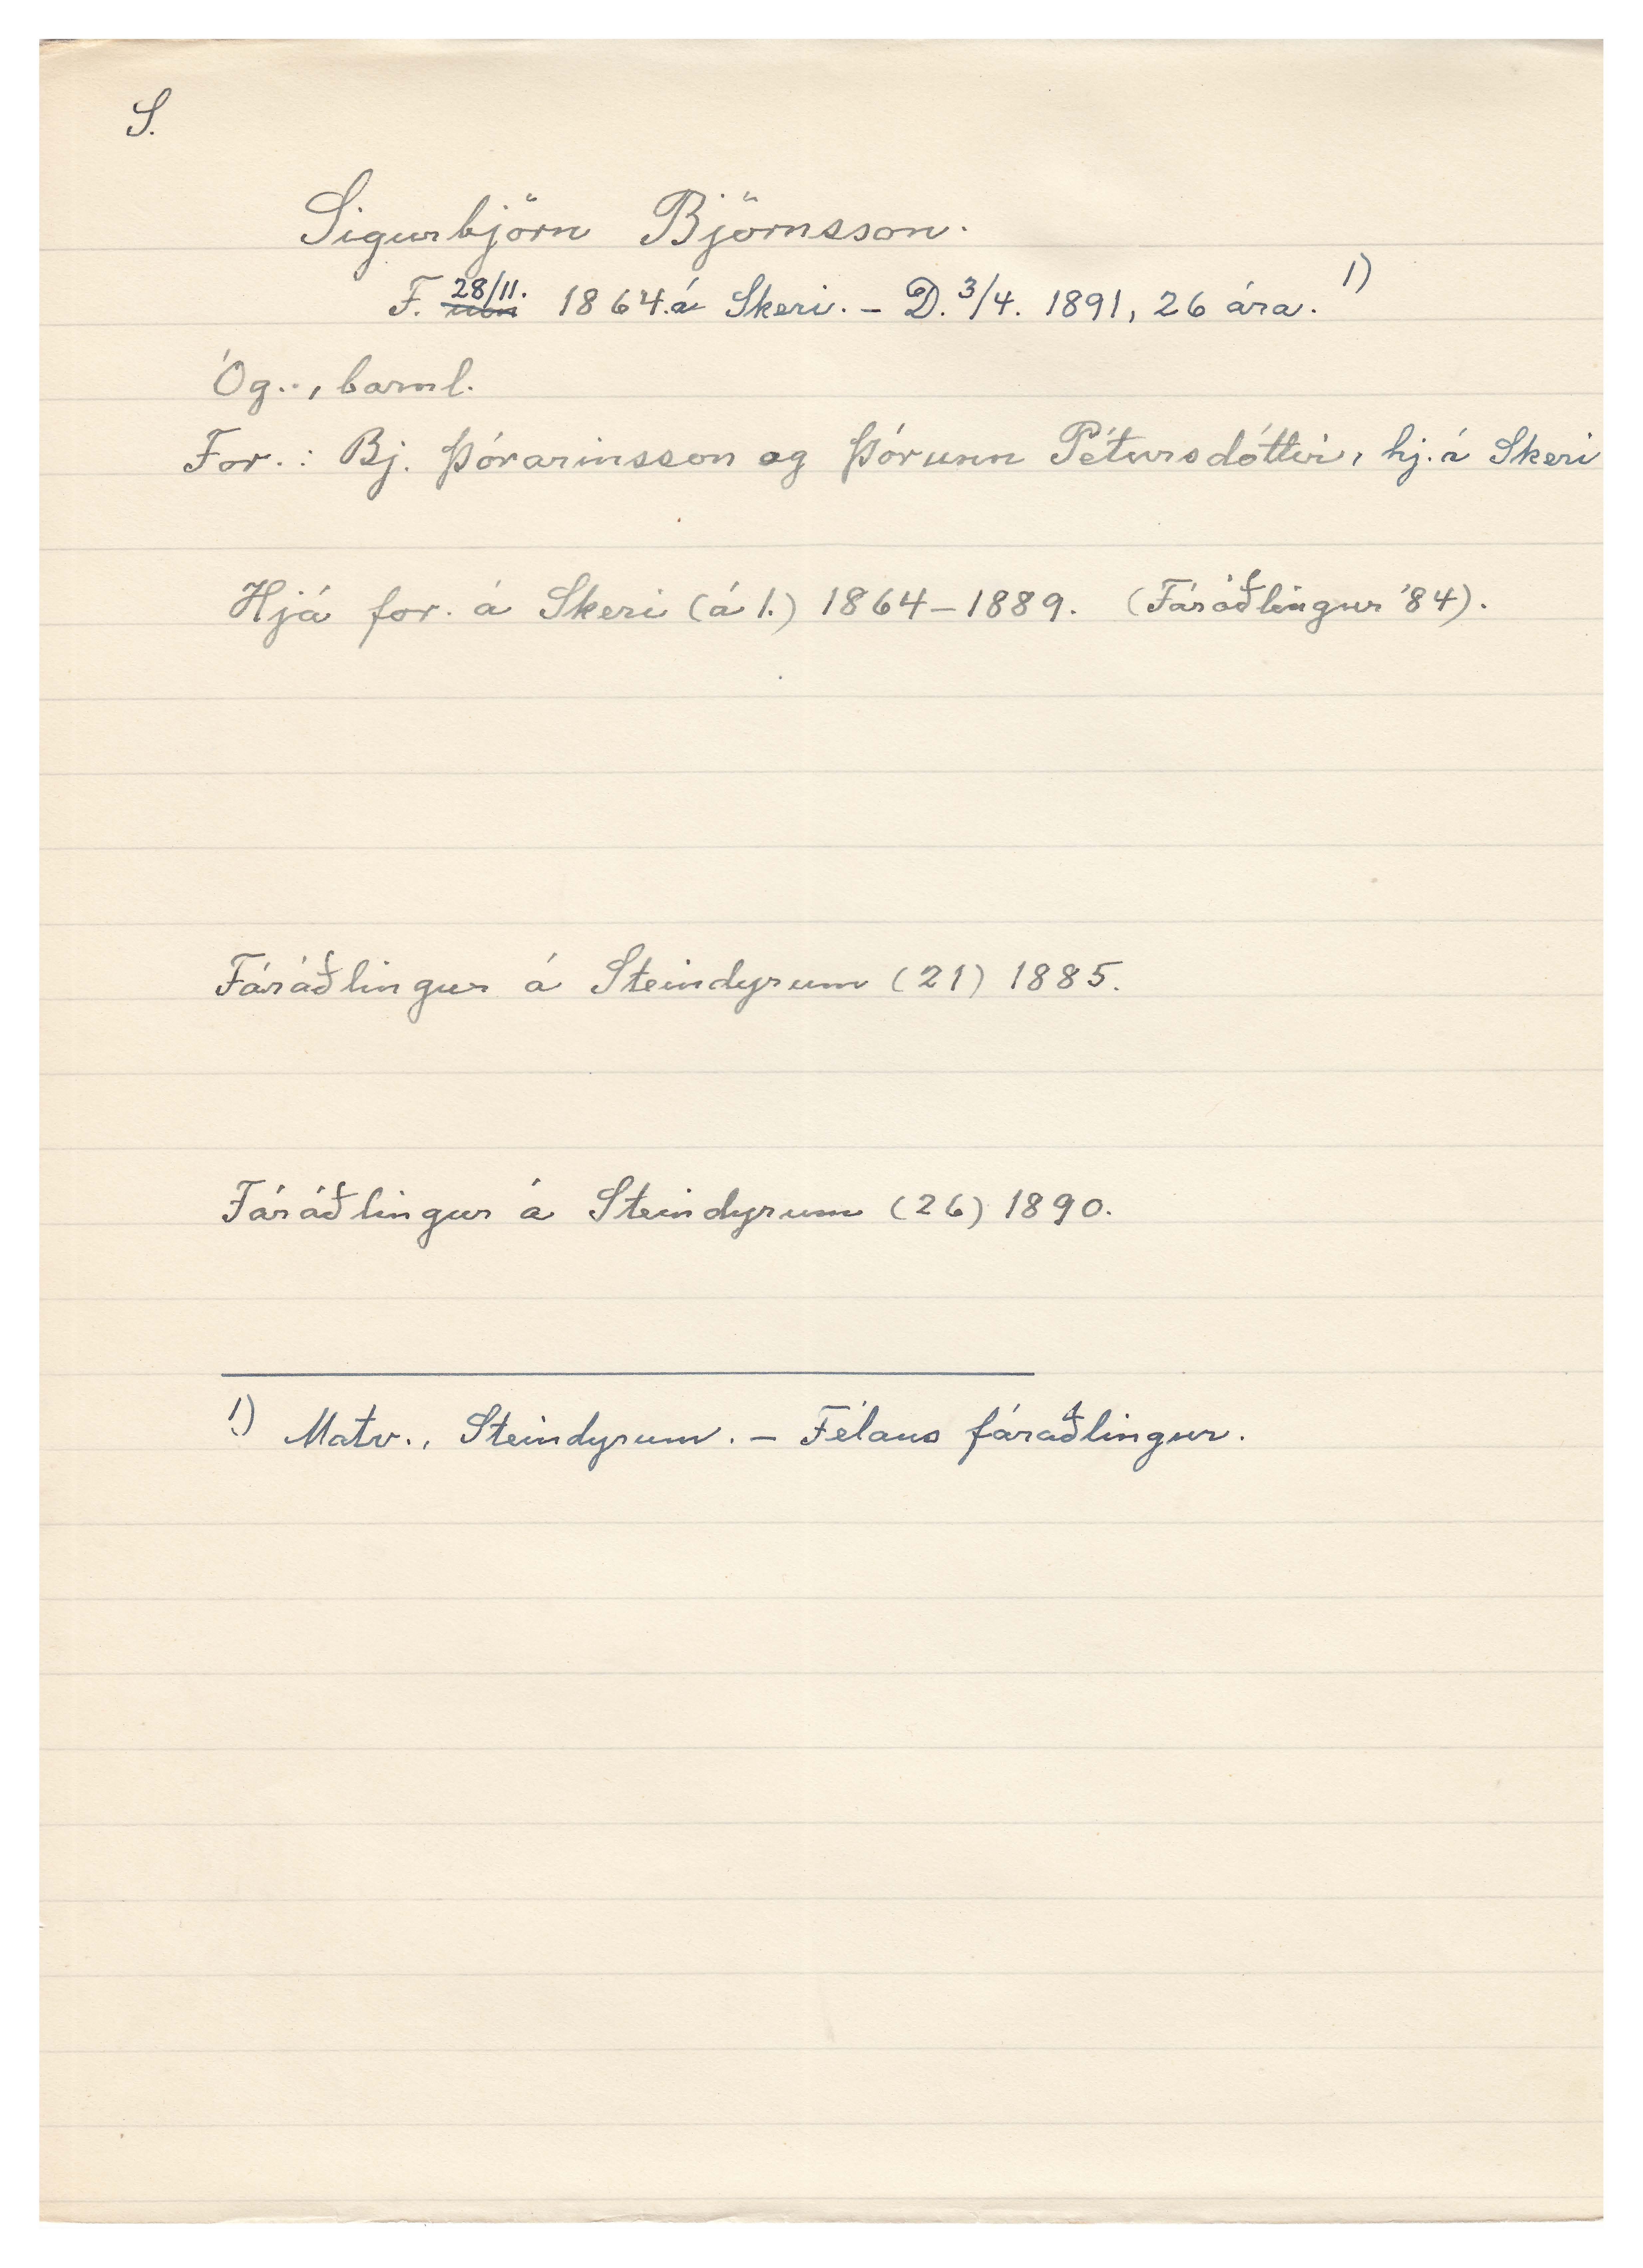 S.
Sigurbjörn Björnsson.
F. 28/11. 1864 á Skeri. – D. 3/4. 1891, 26 ára. 1)
Óg., barnl.
For.: Bj. Þórarinsson og Þórunn Pétursdóttir, hj. á Skeri
Hjá for. á Skeri (á 1.) 1864–1889. (Fáráðlingur '84).
Fáráðlingur á Steindyrum (21) 1885.
Fáráðlingur á Steindyrum (26) 1890.
1) Matv., Steindyrum. – Félaus fáráðlingur.